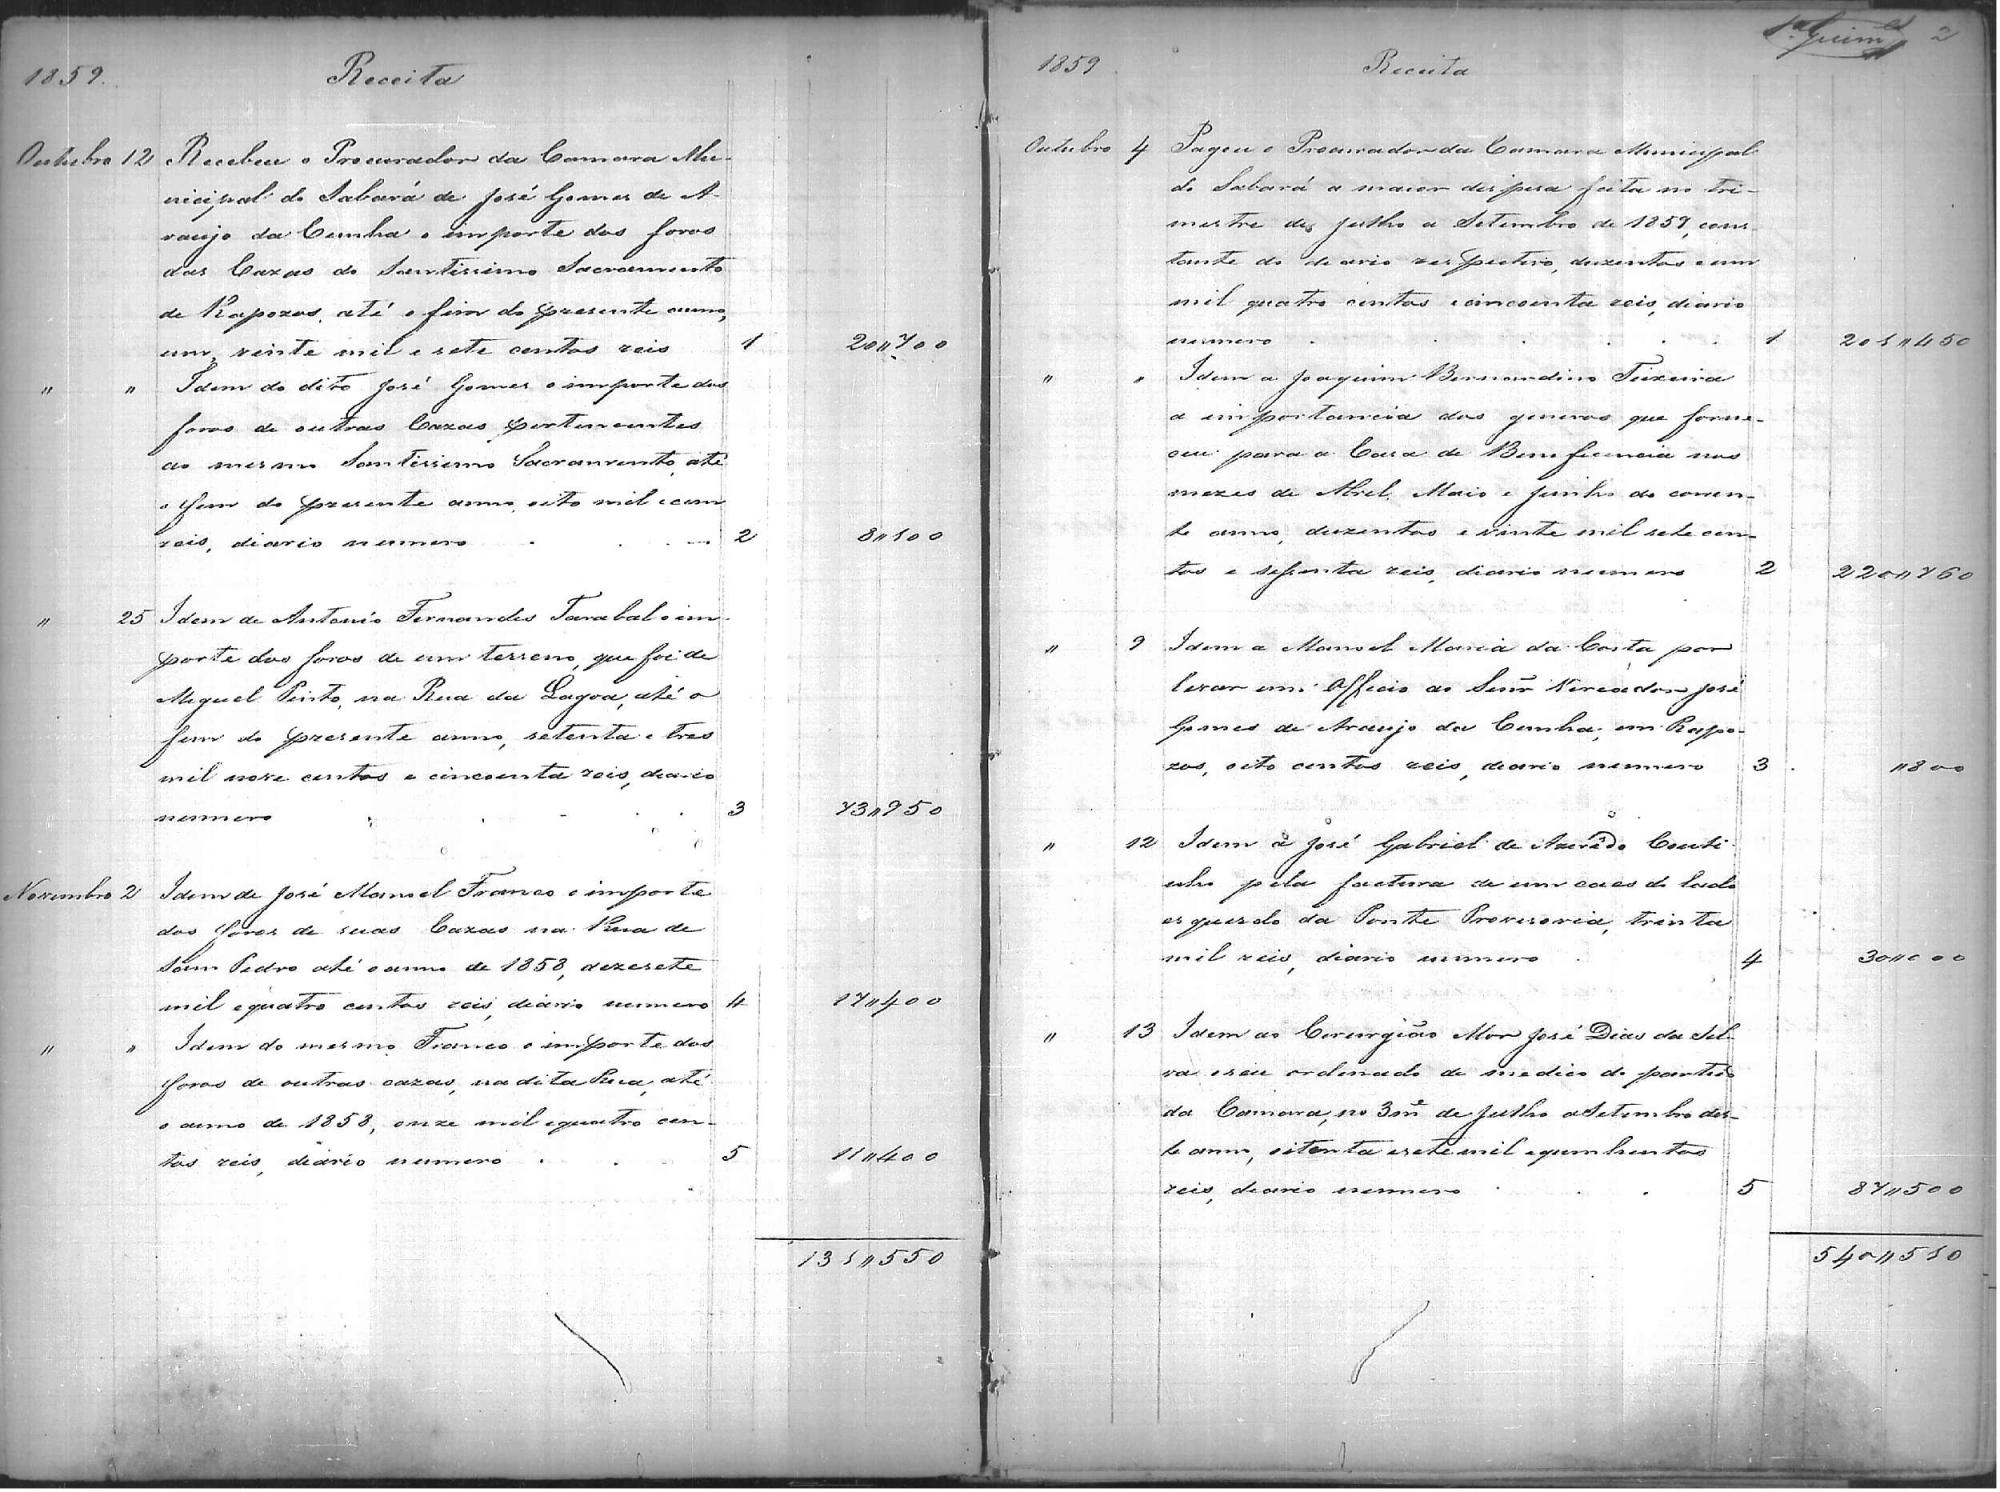 1859. Receita
Outubro 12 Recebeu o Procurador da Camara Mu-
nicipal do Sabará de José Gomes de A-
raujo da Cunha o importe dos foros
das Cazas do Santissimo Sacramento
de Rapozos, até o fim do presente anno,
um, vinte mil e sete centos reis 1 20"700
" " Idem do dito José Gomes o importe dos
foros de outras Cazas pertencentes
ao mesmo Santissimo Sacramento, até
o fim do presente anno, oito mil e cem
reis, diario numero 2 8"100
" 25 Idem de Antonio Fernandes Tarabal o im-
porte dos foros de um terreno, que foi de
Miguel Pinto, na Rua da Lagoa, até o
fim do presente anno, setenta e tres
mil nove centos e cincoenta reis, diario
numero 3 73"950
Novembro 2 Idem de José Manoel Franco o importe
dos foros de suas Cazas na Rua de
Sam Pedro até o anno de 1858, dezesete
mil e quatro centos reis, diario numero 4 17"400
" " Idem do mesmo Franco o importe dos
foros de outras cazas, na dita Rua, até
o anno de 1858, onze mil e quatro cen-
tos reis, diario numero 5 11"400
131"550
2
1859 Receita
Outubro 4 Pagou o Procurador da Camara Municipal
do Sabará a maior despesa feita no tri-
mestre de Julho a Setembro de 1859, cons-
tante do diario respectivo, duzentos e um
mil quatro centos e cincoenta reis, diario
numero 1 201"450
" " Idem a Joaquim Bernardino Teixeira
a importancia dos generos que forne-
ceu para a Casa de Beneficencia nos
mezes de Abril, Maio e Junho do corren-
te anno, duzentos e vinte mil sete cen-
tos e sessenta reis, diario numero 2 220"760
" 9 Idem a Manoel Maria da Costa por
levar um Officio ao Senr Vereador José
Gomes de Araujo da Cunha, em Rapo-
zos, oito centos reis, diario numero 3 "800
" 12 Idem á José Gabriel de Azerêdo Couti-
nho pela factura de um caes do lado
esquerdo da Ponte Provisoria, trinta
mil reis, diario numero 4 30"000
" 13 Idem ao Cirurgião Mor José Dias da Sil-
va o seu ordenado de medico do partido
da Camara, no 3me de Julho a Setembro des-
te anno, oitenta e sete mil e quinhentos
reis, diario numero 5 87"500
540"510